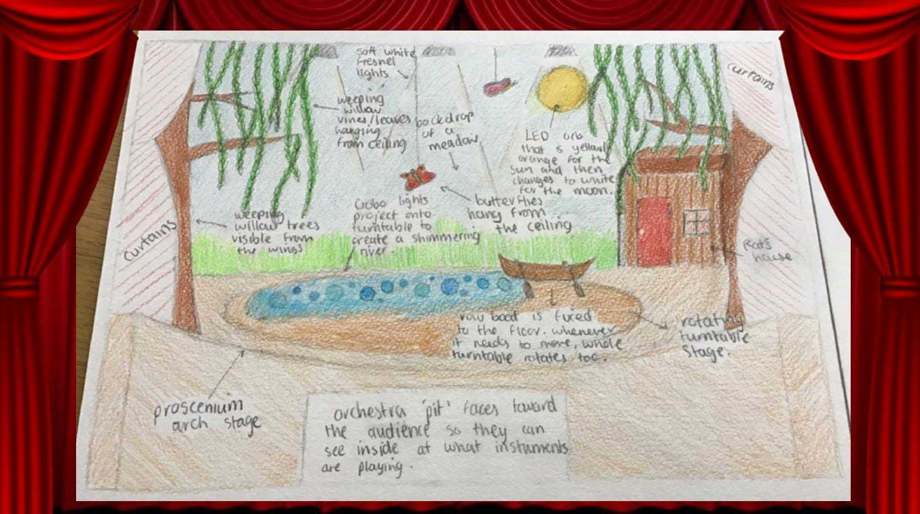 soft white
fresnel
lights
weeping
willow
vines/leaves
hanging
from ceiling
backdrop
of a
meadow
LED orb
that is yellow/
orange for the
sun and then
changes to white
for the moon.
curtains
Gobo lights
project onto
turntable to
create a shimmering
river.
butterflies
hang from
the ceiling
weeping
willow trees
visible from
the wings
curtains
Rat's
house
row boat is fixed
to the floor. whenever
it needs to move, whole
turntable rotates too.
rotating
turntable
stage.
proscenium
arch stage
orchestra 'pit' faces toward
the audience so they can
see inside at what instruments
are playing.